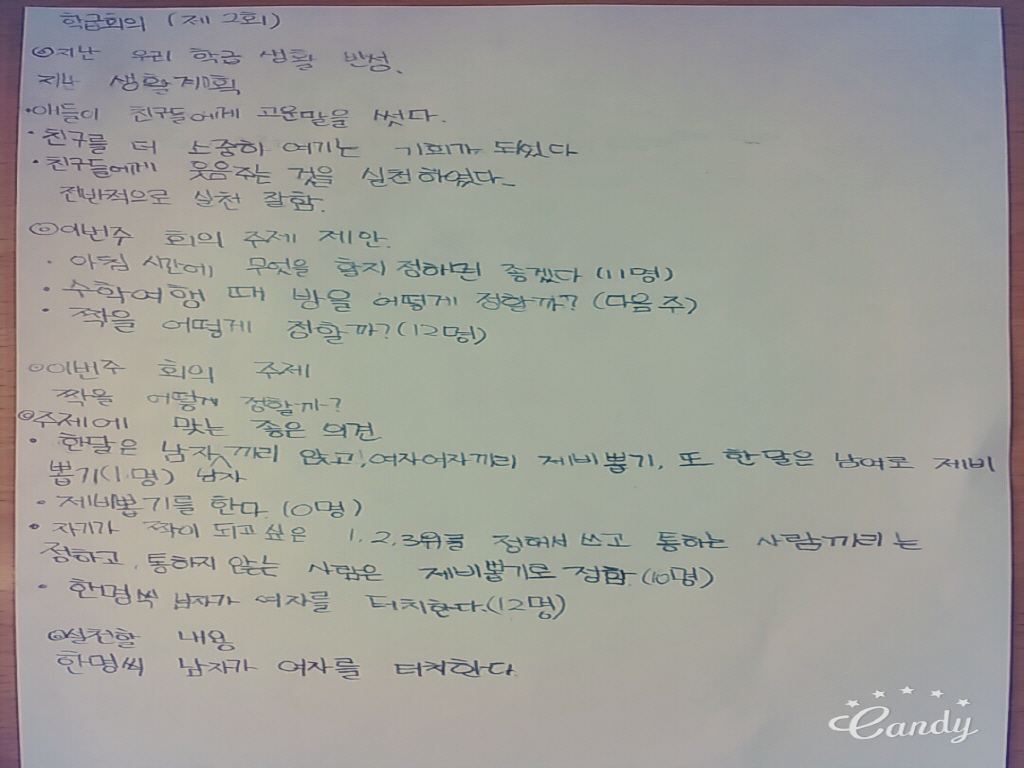 학급회의 (제 2회)
◎지난 우리 학급 생활 반성.
지난 생활계획
·애들이 친구들에게 고운말을 썼다.
·친구를 더 소중히 여기는 기회가 되었다
·친구들에게 웃음주는 것을 실천하였다.
전반적으로 실천 잘함.
◎이번주 회의 주제 제안.
· 아침 시간에 무엇을 할지 정하면 좋겠다 (11명)
· 수학여행 때 방을 어떻게 정할까? (다음주)
· 짝을 어떻게 정할까? (12명)
◎이번주 회의 주제
짝을 어떻게 정할까?
◎주제에 맞는 좋은 의견
· 한달은 남자남자끼리 앉고, 여자여자끼리 제비뽑기, 또 한달은 남여로 제비
뽑기(1명)
· 제비뽑기를 한다 (0명)
· 자기가 짝이 되고싶은 1,2,3위를 정해서 쓰고 통하는 사람끼리는
정하고, 통하지 않는 사람은 제비뽑기로 정함.(10명)
· 한명씩 남자가 여자를 터치한다.(12명)
◎실천할 내용
한명씩 남자가 여자를 터치한다.
Candy